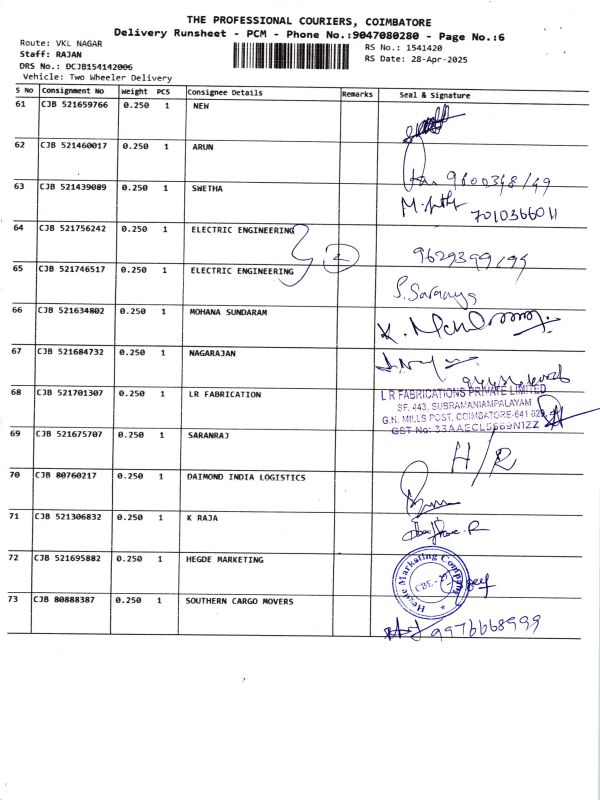 THE PROFESSIONAL COURIERS, COIMBATORE
Delivery Runsheet - PCM - Phone No.:9047080280 - Page No.:6
Route: VKL NAGAR
RS No.: 1541420
Staff: RAJAN
RS Date: 28-Apr-2025
DRS No.: DCJB154142006
Vehicle: Two Wheeler Delivery
S No Consignment No Weight PCS Consignee Details Remarks Seal & Signature
61 CJB 521659766 0.250 1 NEW
62 CJB 521460017 0.250 1 ARUN
63 CJB 521439089 0.250 1 SWETHA
7010366011
64 CJB 521756242 0.250 1 ELECTRIC ENGINEERING
2
65 CJB 521746517 0.250 1 ELECTRIC ENGINEERING
S. Saranya
66 CJB 521634802 0.250 1 MOHANA SUNDARAM
67 CJB 521684732 0.250 1 NAGARAJAN
68 CJB 521701307 0.250 1 LR FABRICATION
L R FABRICATIONS PRIVATE LIMITED
SF. 443, SUBRAMANIAMPALAYAM
G.N. MILLS POST, COIMBATORE-641 029
GST No: 33AAECL5569N1ZZ
69 CJB 521675707 0.250 1 SARANRAJ
H/R
70 CJB 80760217 0.250 1 DAIMOND INDIA LOGISTICS
71 CJB 521306832 0.250 1 K RAJA
72 CJB 521695882 0.250 1 HEGDE MARKETING
Hegde Marketing Company
CBE - 27
73 CJB 80888387 0.250 1 SOUTHERN CARGO MOVERS
9976668999